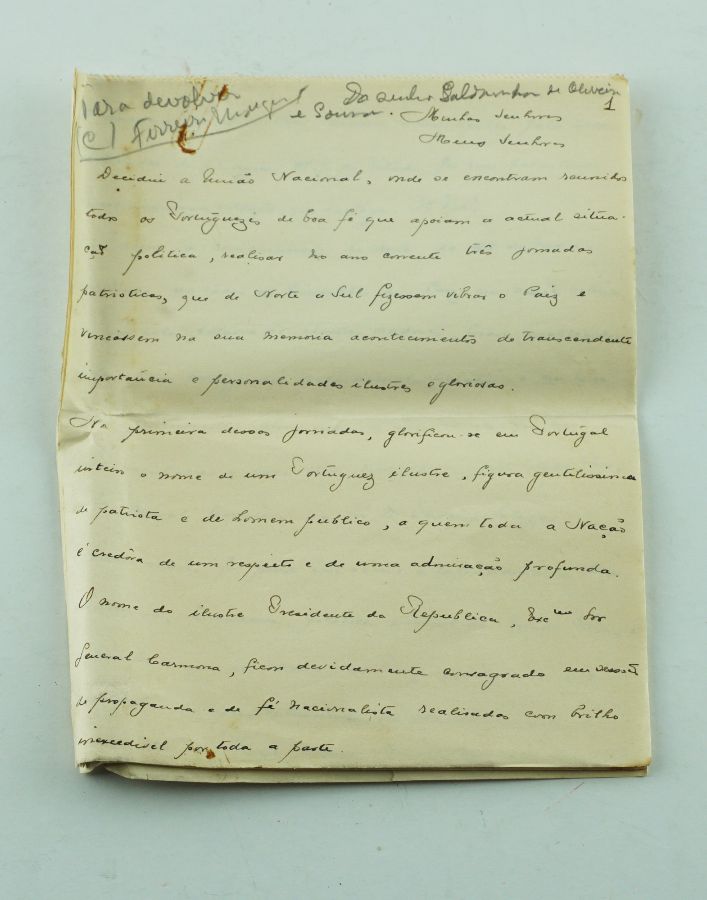 Para devolver
(e) Ferreira
Do senhor Saldanha de Oliveira
1
e Sousa. Minhas Senhoras
Meus Senhores
Decidiu a União Nacional, onde se encontram reunidos
todos os Portuguezes de boa fé que apoiam a actual situa-
ção politica, realisar no ano corrente três jornadas
patrioticas, que de Norte a Sul fizessem vibrar o Paiz e
vincassem na sua memoria acontecimentos de transcendente
importancia e personalidades ilustres e gloriosas.
Na primeira dessas jornadas, glorificou-se em Portugal
inteiro o nome de um Portuguez ilustre, figura gentilissima
de patriota e de homem publico, a quem toda a Nação
é credôra de um respeito e de uma admiração profunda.
O nome do ilustre Presidente da Republica, Exmo Snr
General Carmona, ficou devidamente consagrado em sessões
de propaganda e de fé nacionalista realisadas com brilho
inexcedivel por toda a parte.